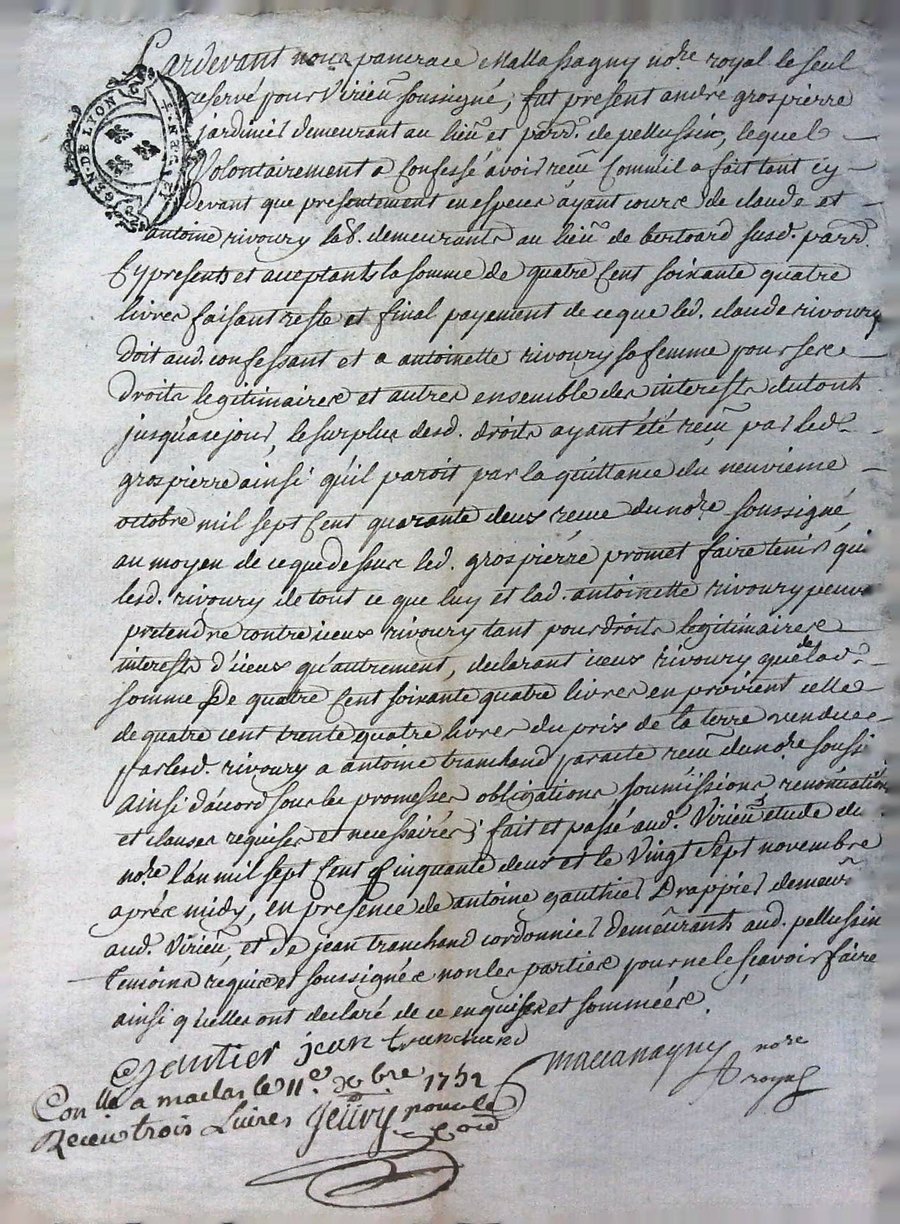 Pardevant nous pancrace Mallassagny no.re royal le seul
reservé pour Virieu soussigné, fut present andré grospierre
jardinier demeurant au lieu et parr. de pellussin, lequel
GEN. DE LYON
Volontairement a confessé avoir reçu comm'il a fait tant cy
devant que presentement en especes ayant cours de claude et
antoine rivoury lab. demeurants au lieu de bertoard susd. parr.
cy presents et acceptants la somme de quatre cent soixante quatre
livres faisant reste et final payement de ce que led. claude rivoury
doit aud. confessant et a antoinette rivoury sa femme pour ses
droits legitimaires et autres ensemble des interests du tout
jusqu'a ce jour, le surplus desd. droits ayant été reçu par led.
grospierre ainsi qu'il paroit par la quittance du neuvieme
octobre mil sept cent quarante deux recue du no.re soussigné
au moyen de ce que dessus led. grospierre promet faire tenir qui
lesd. rivoury de tout ce que luy et lad. antoinette rivoury peuv
pretendre contre iceux rivoury tant pour droits légitimaires
interests d'iceux qu'autrement, declarant iceux rivoury que de lad.
somme de quatre cent soixante quatre livres en provient celle
de quatre cent trente quatre livres du prix de la terre vendue
par lesd. rivoury a antoine tranchand par acte reçu du no.re soussi
ainsi d'acord sous les promesses obligations, soumissions, renonciations
et clauses requises et necessaires; fait et passé aud. Virieu etude du
no.re l'an mil sept cent cinquante deux et le vingt sept novembre
après midy, en presence de antoine gauthier Drappier demeur
aud. Virieu, et de jean tranchand cordonnier demeurants aud. pellussin
temoins requis et soussignés non les parties pour ne le sçavoir faire
ainsi qu'elles ont declaré de ce enquises et sommées.
Gautier jean tranchand
mallassagny no.re
royal
Con.lle a maclas le 11.e xbre 1752
Receu trois Livres Jeuvy pour le